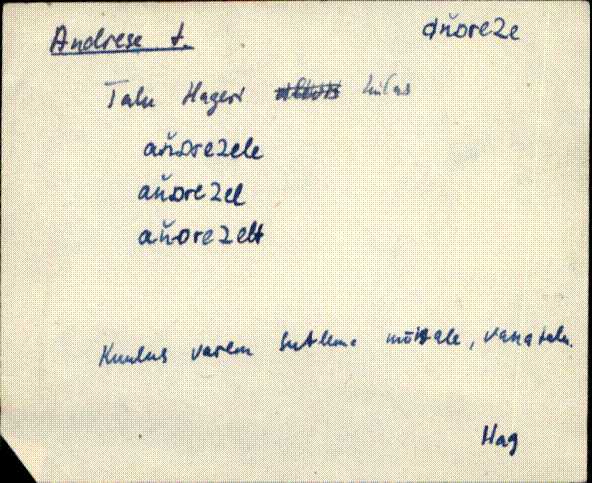 Andrese t. ańdreze
Talu Hageri külas
ańdrezele
ańdrezel
ańdrezelt
Kuulus varem Sutlema mõisale, vana talu.
Hag